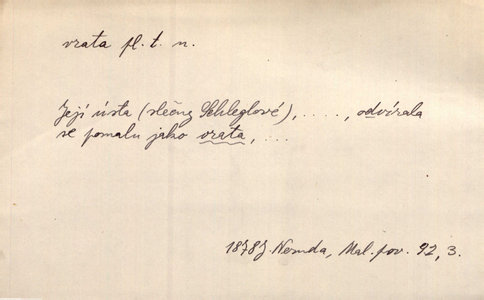 vrata pl. t. n.
Její ústa (slečny Schleglové), ....., odvírala
se pomalu jako vrata, ...
1878 J. Neruda, Mal. pov. 92, 3.